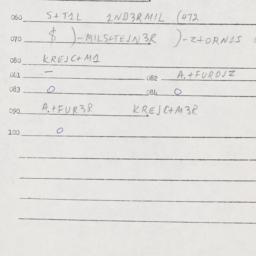 060 S+T1L 1ND3RMIL (472
070 $ )-MILS+TEJN3R )-Z+ORN1S
080 KREJC+M1
081 — 082 A.+FURDJZ
083 0 084 0
090 A.+FUR3R KREJC+M3R
100 0